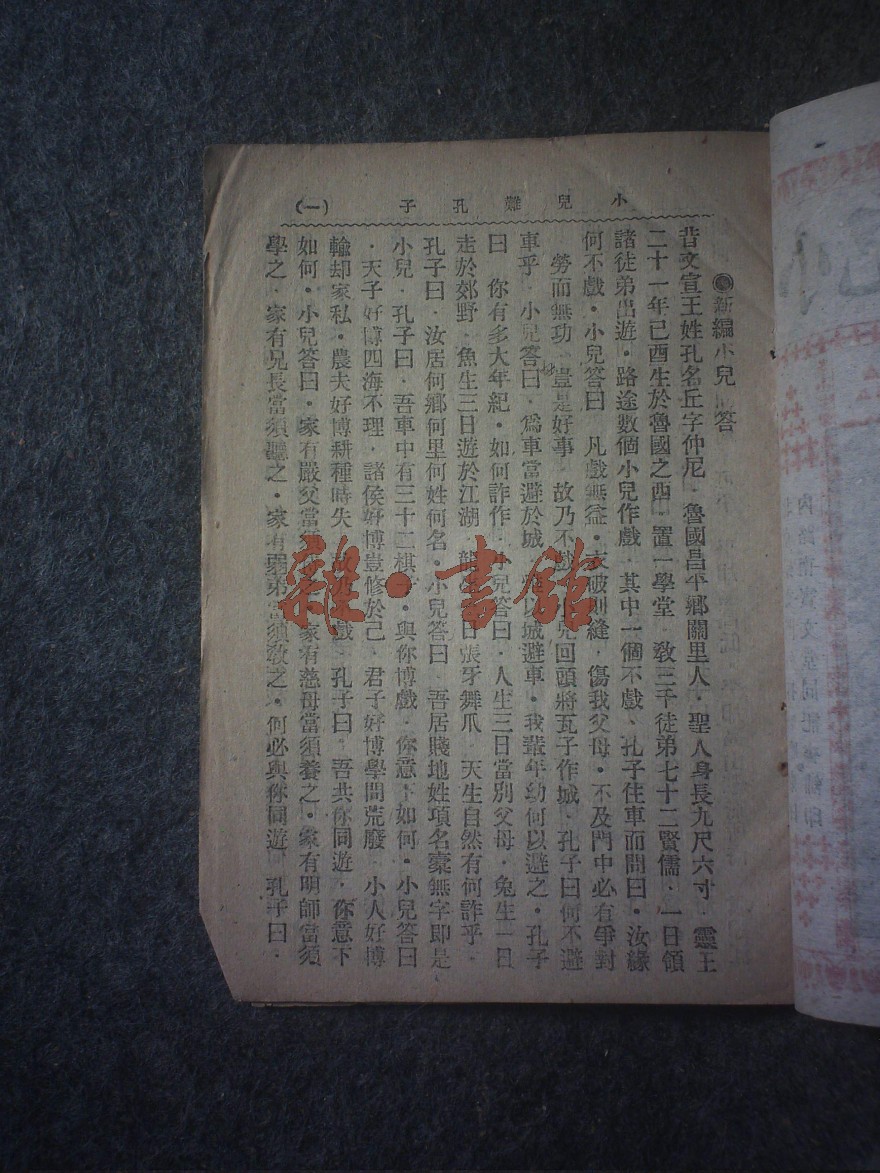 小兒難孔子 (一)
新編小兒 答
昔文宣王姓孔名丘字仲尼．魯國昌平鄉關里人．聖人身長九尺六寸．靈王
二十一年已酉生於魯國之西．置一學堂 敎三千徒弟七十二賢儒．一日領
諸徒弟出遊．路途數個小兒作戲．其中一個不戲、孔子住車而問曰．汝緣
何不戲．小兒答曰 凡戲無益．衣破則縫．傷我父母．不及門中必有爭對
勞而無功．豈是好事 故乃不戲 小兒回頭將瓦子作城．孔子曰何不避
車乎．小兒答曰．爲車當避於城 豈以城避車．我輩年幼何以避之．孔子
曰 你有多大年紀．如何詐作．小兒答曰．人生三日當別父母．兔生一日
走於郊野．魚生三日遊於江湖．龍生 日張牙舞爪 天生自然有何詐乎．
孔子曰．汝居何鄉何里何姓何名．小兒答曰 吾居賤地姓項名橐無字即是
小兒．孔子曰．吾車中有三十二棋 ．與你博戲．你意下如何．小兒答曰
．天子好博四海不理．諸侯好博豈修於己．君子好博學問荒廢．小人好博
輸却家私．農夫好博耕種時失 故乃 戲 孔子曰．吾共你同遊．你意下
如何．小兒答曰．家有嚴父當須 家有慈母當須養之．家有明師當須
學之．家有兄長當須聽之．家有弱弟當須敎之．何必與你同遊．孔子曰．
雜·書館